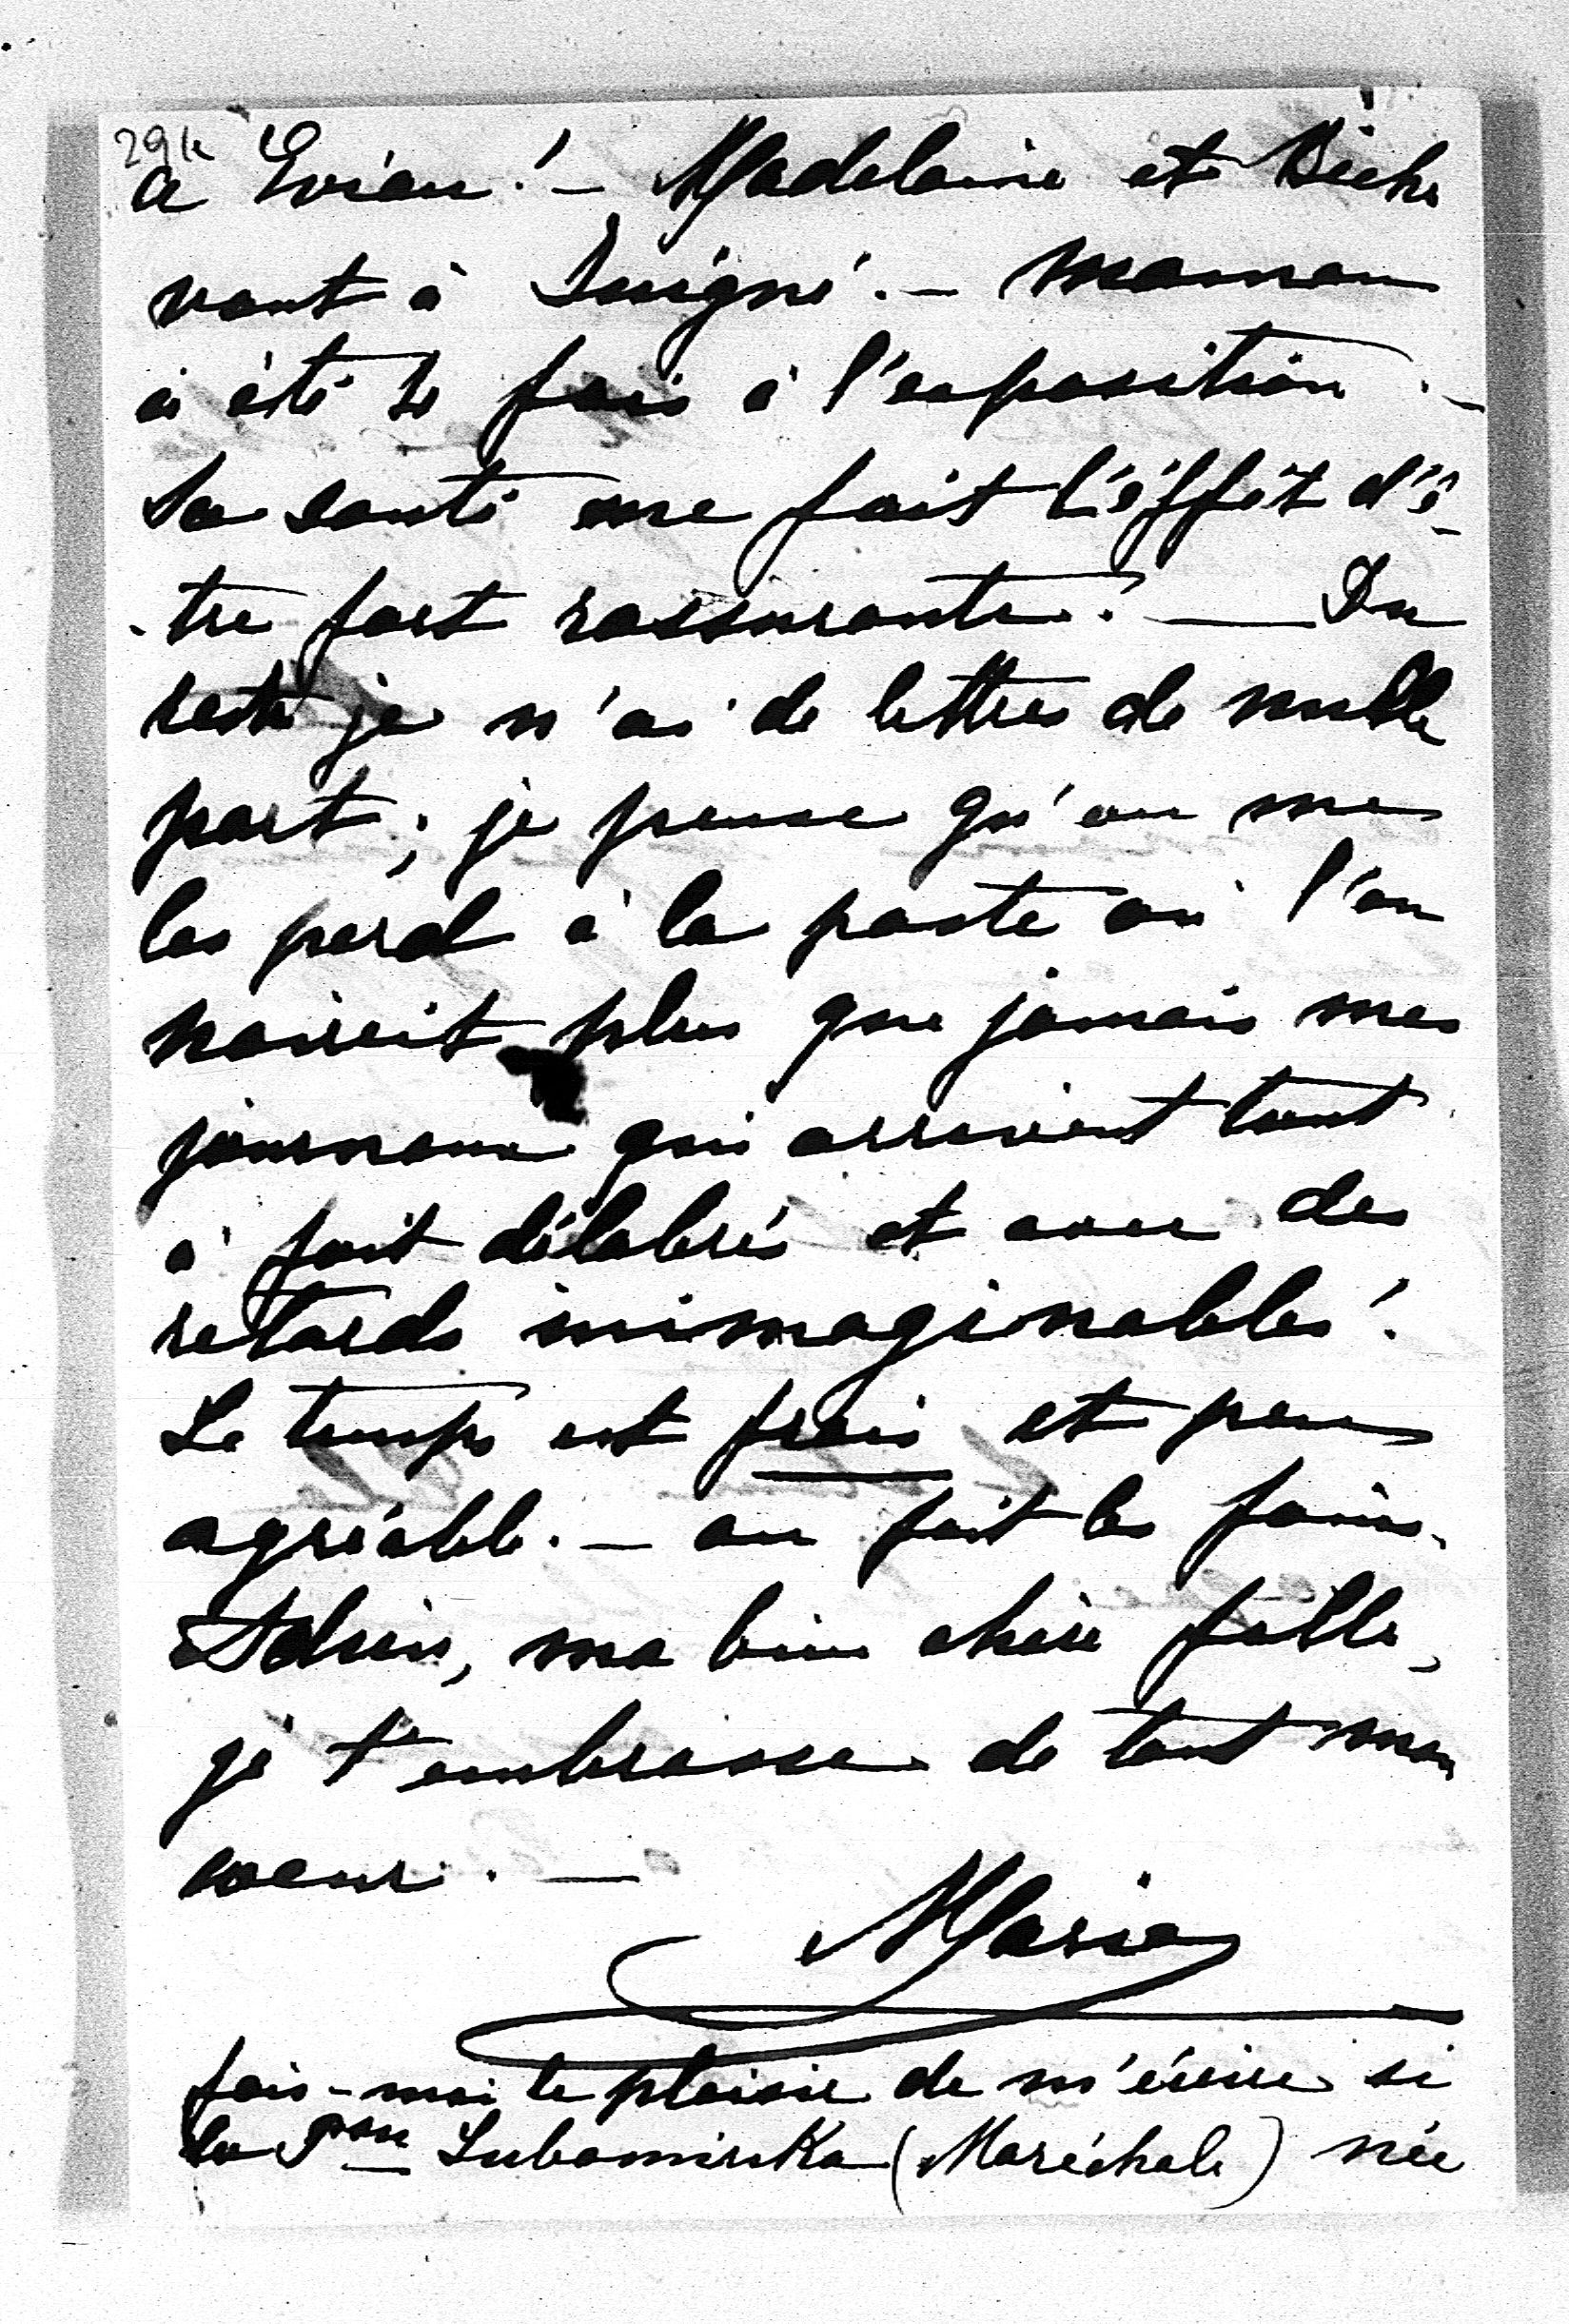 29k
à Evian! – Madeleine et Biche
vont à Juigné. – maman
a été 2 fois à l'exposition. –
Sa santé me fait l'éffét d'ê-
-tre fort rassurante! — Du
reste je n'ai de lettres de nulle
part; je pense qu'on me
les perd à la poste où l'on
noircit plus que jamais mes
journaux qui arrivent tout
à fait délabrés et avec des
retards inimaginables!
Le temps est frais et peu
agréable. – on fait les foins.
Adieu, ma bien chère fille,
je t'embrasse de tout mon
coeur. —
Maria
fais-moi le plaisir de m'écrire si
la Psse Lubomirska (Maréchale) née